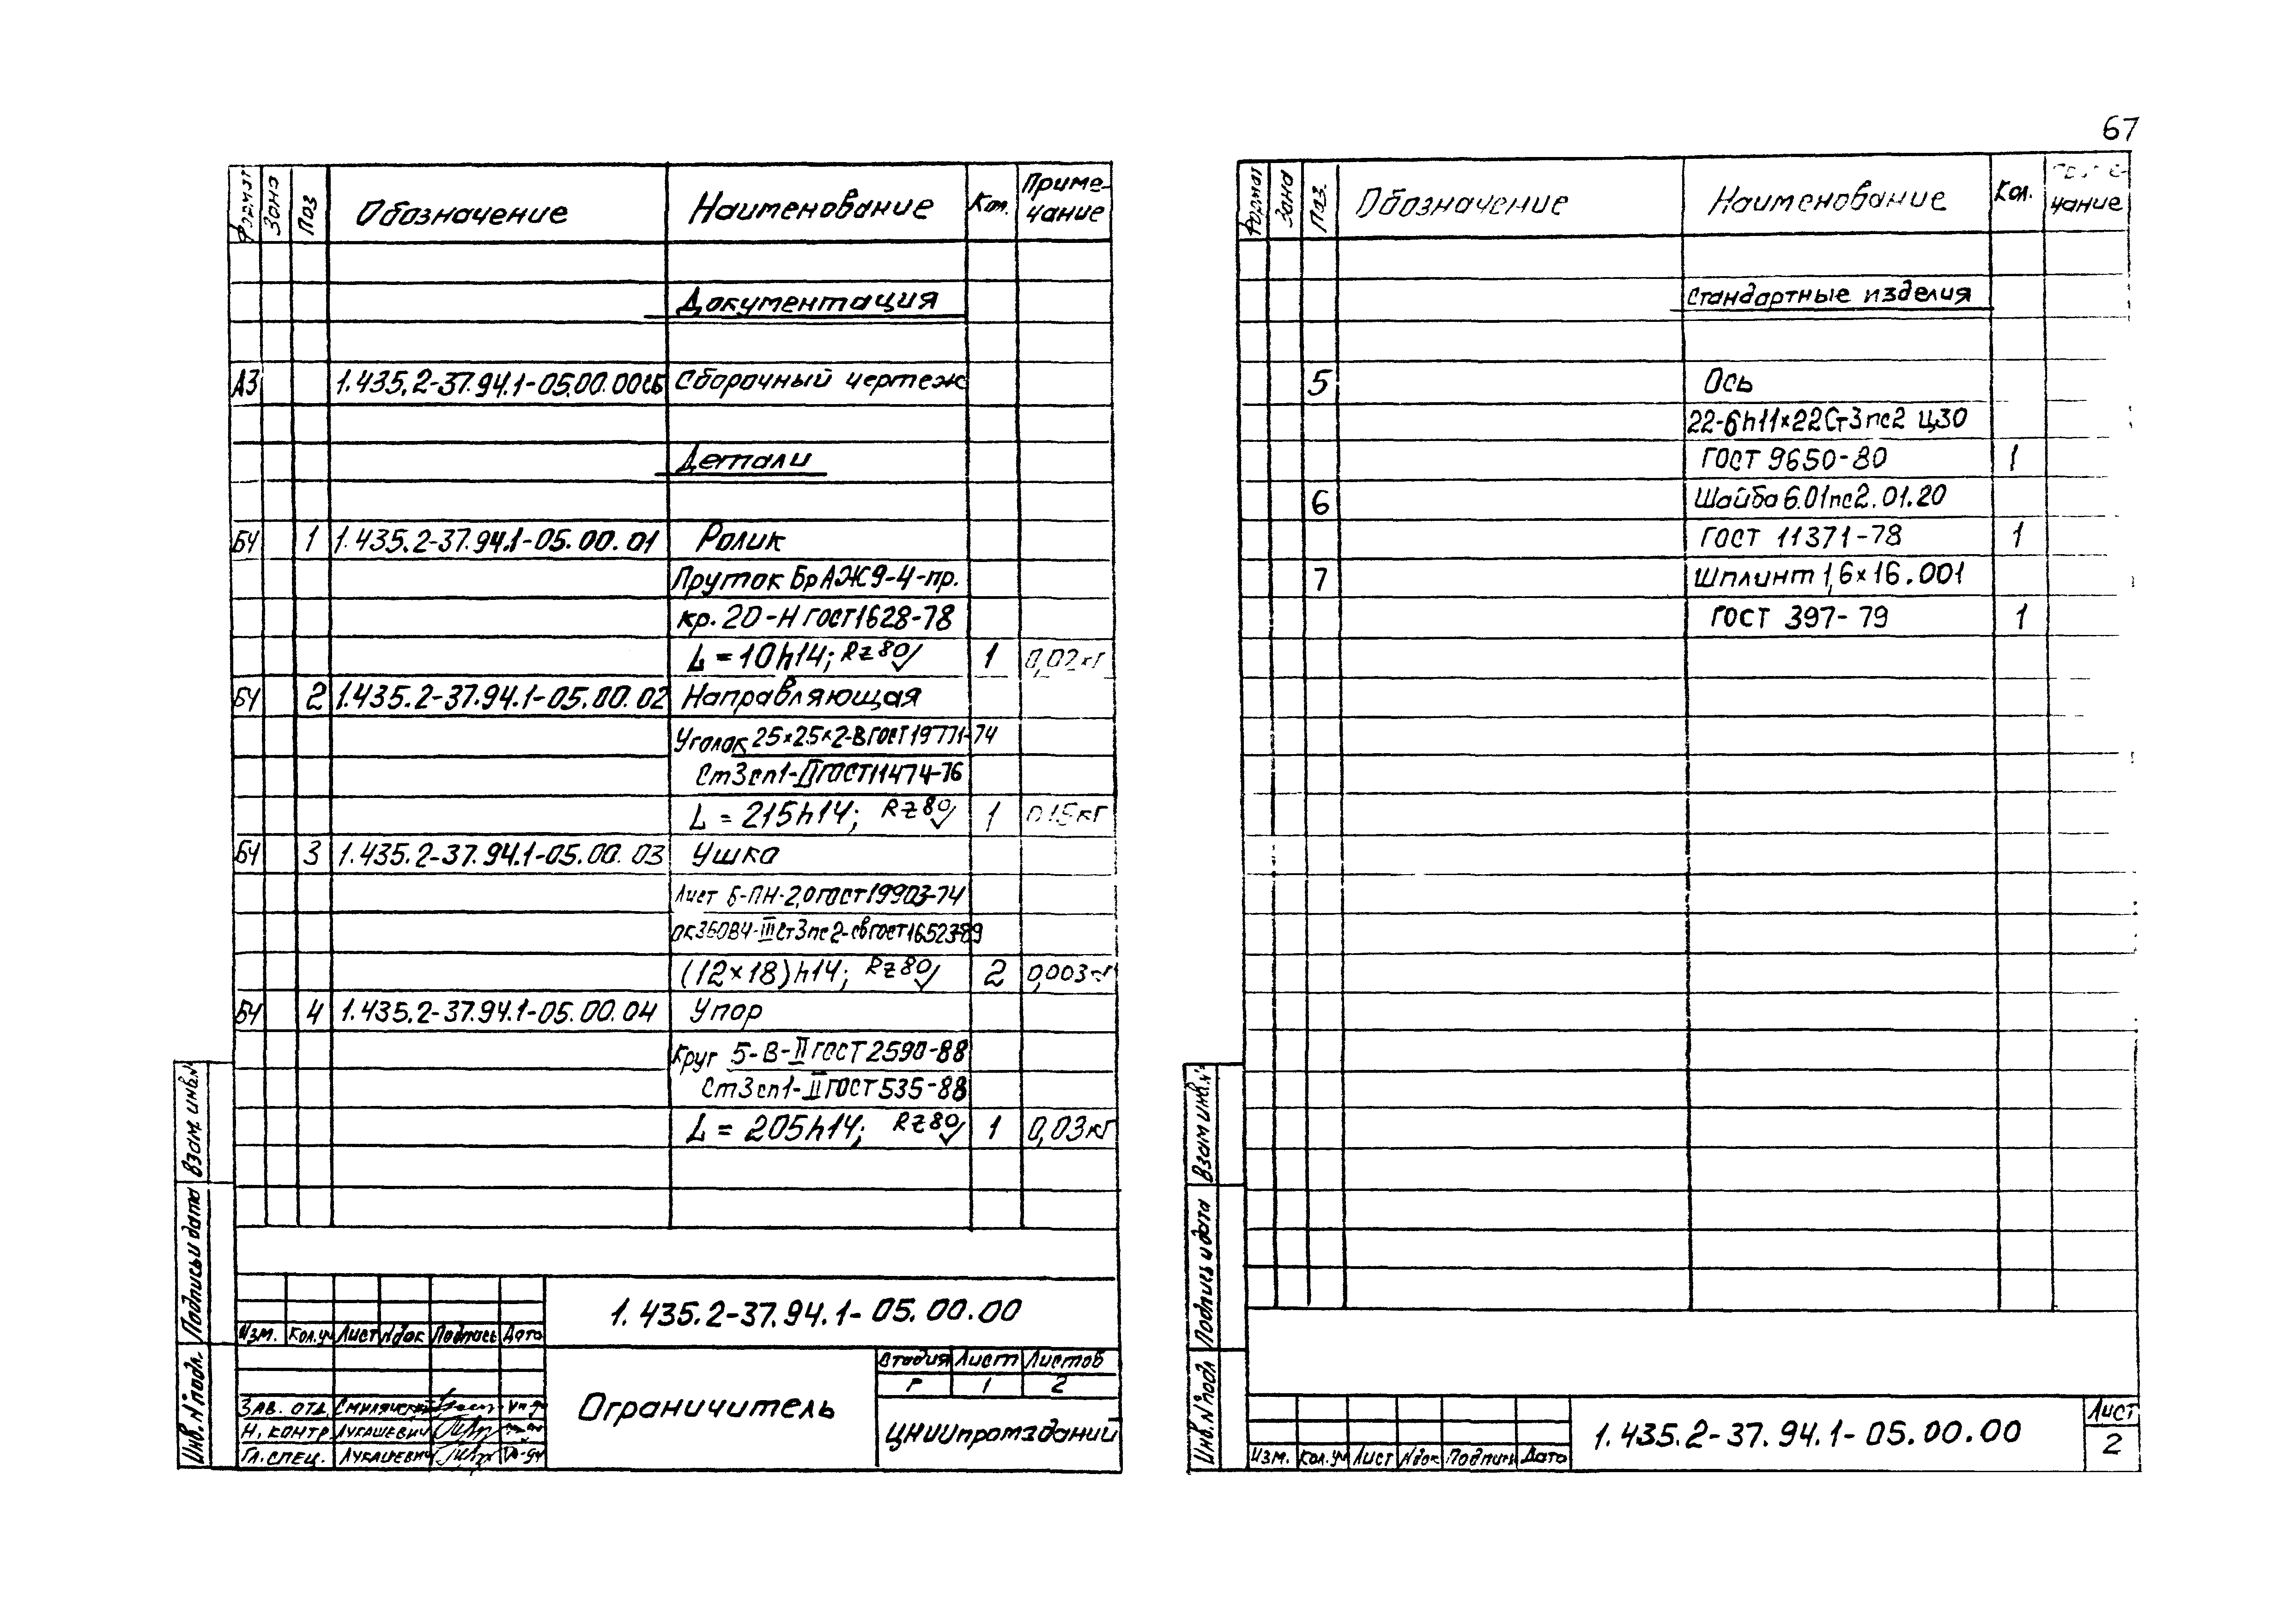 67
Формат Зона Поз Обозначение Наименование Кол. Приме-
чание
Документация
А3 1.435.2-37.94.1-05.00.00СБ Сборочный чертеж
Детали
БЧ 1 1.435.2-37.94.1-05.00.01 Ролик
Пруток БрАЖ9-4-пр.
кр. 20-Н ГОСТ1628-78
L = 10h14; Rz80 1 0,02кг
БЧ 2 1.435.2-37.94.1-05.00.02 Направляющая
Уголок 25×25×2-В ГОСТ19771-74
Ст3сп1-II ГОСТ11474-76
L = 215h14; Rz80 1 0,15кг
БЧ 3 1.435.2-37.94.1-05.00.03 Ушко
Лист Б-ПН-2,0 ГОСТ19903-74
ОК360В4-III Ст3пс2-св ГОСТ16523-89
(12×18)h14; Rz80 2 0,003кг
БЧ 4 1.435.2-37.94.1-05.00.04 Упор
Круг 5-В-II ГОСТ 2590-88
Ст3сп1-II ГОСТ 535-88
L = 205h14; Rz80 1 0,03кг
Взам. инв.№
Подпись и дата
Инв.№подл.
1.435.2-37.94.1-05.00.00
Изм. Кол.уч Лист №док Подпись Дата
Ограничитель
Стадия Лист Листов
Р 1 2
Зав. отд.
Н. контр Лукашевич
Гл. спец. Лукашевич
ЦНИИпромзданий
Формат Зона Поз. Обозначение Наименование Кол. Приме-
чание
Стандартные изделия
5 Ось
22-6h11×22Ст3пс2 Ц30
ГОСТ 9650-80 1
6 Шайба 6.01пс2.01.20
ГОСТ 11371-78 1
7 Шплинт 1,6×16.001
ГОСТ 397-79 1
Взам инв.№
Подпись и дата
Инв.№подл
Изм. Кол.уч Лист №док Подпись Дата
1.435.2-37.94.1-05.00.00
Лист
2